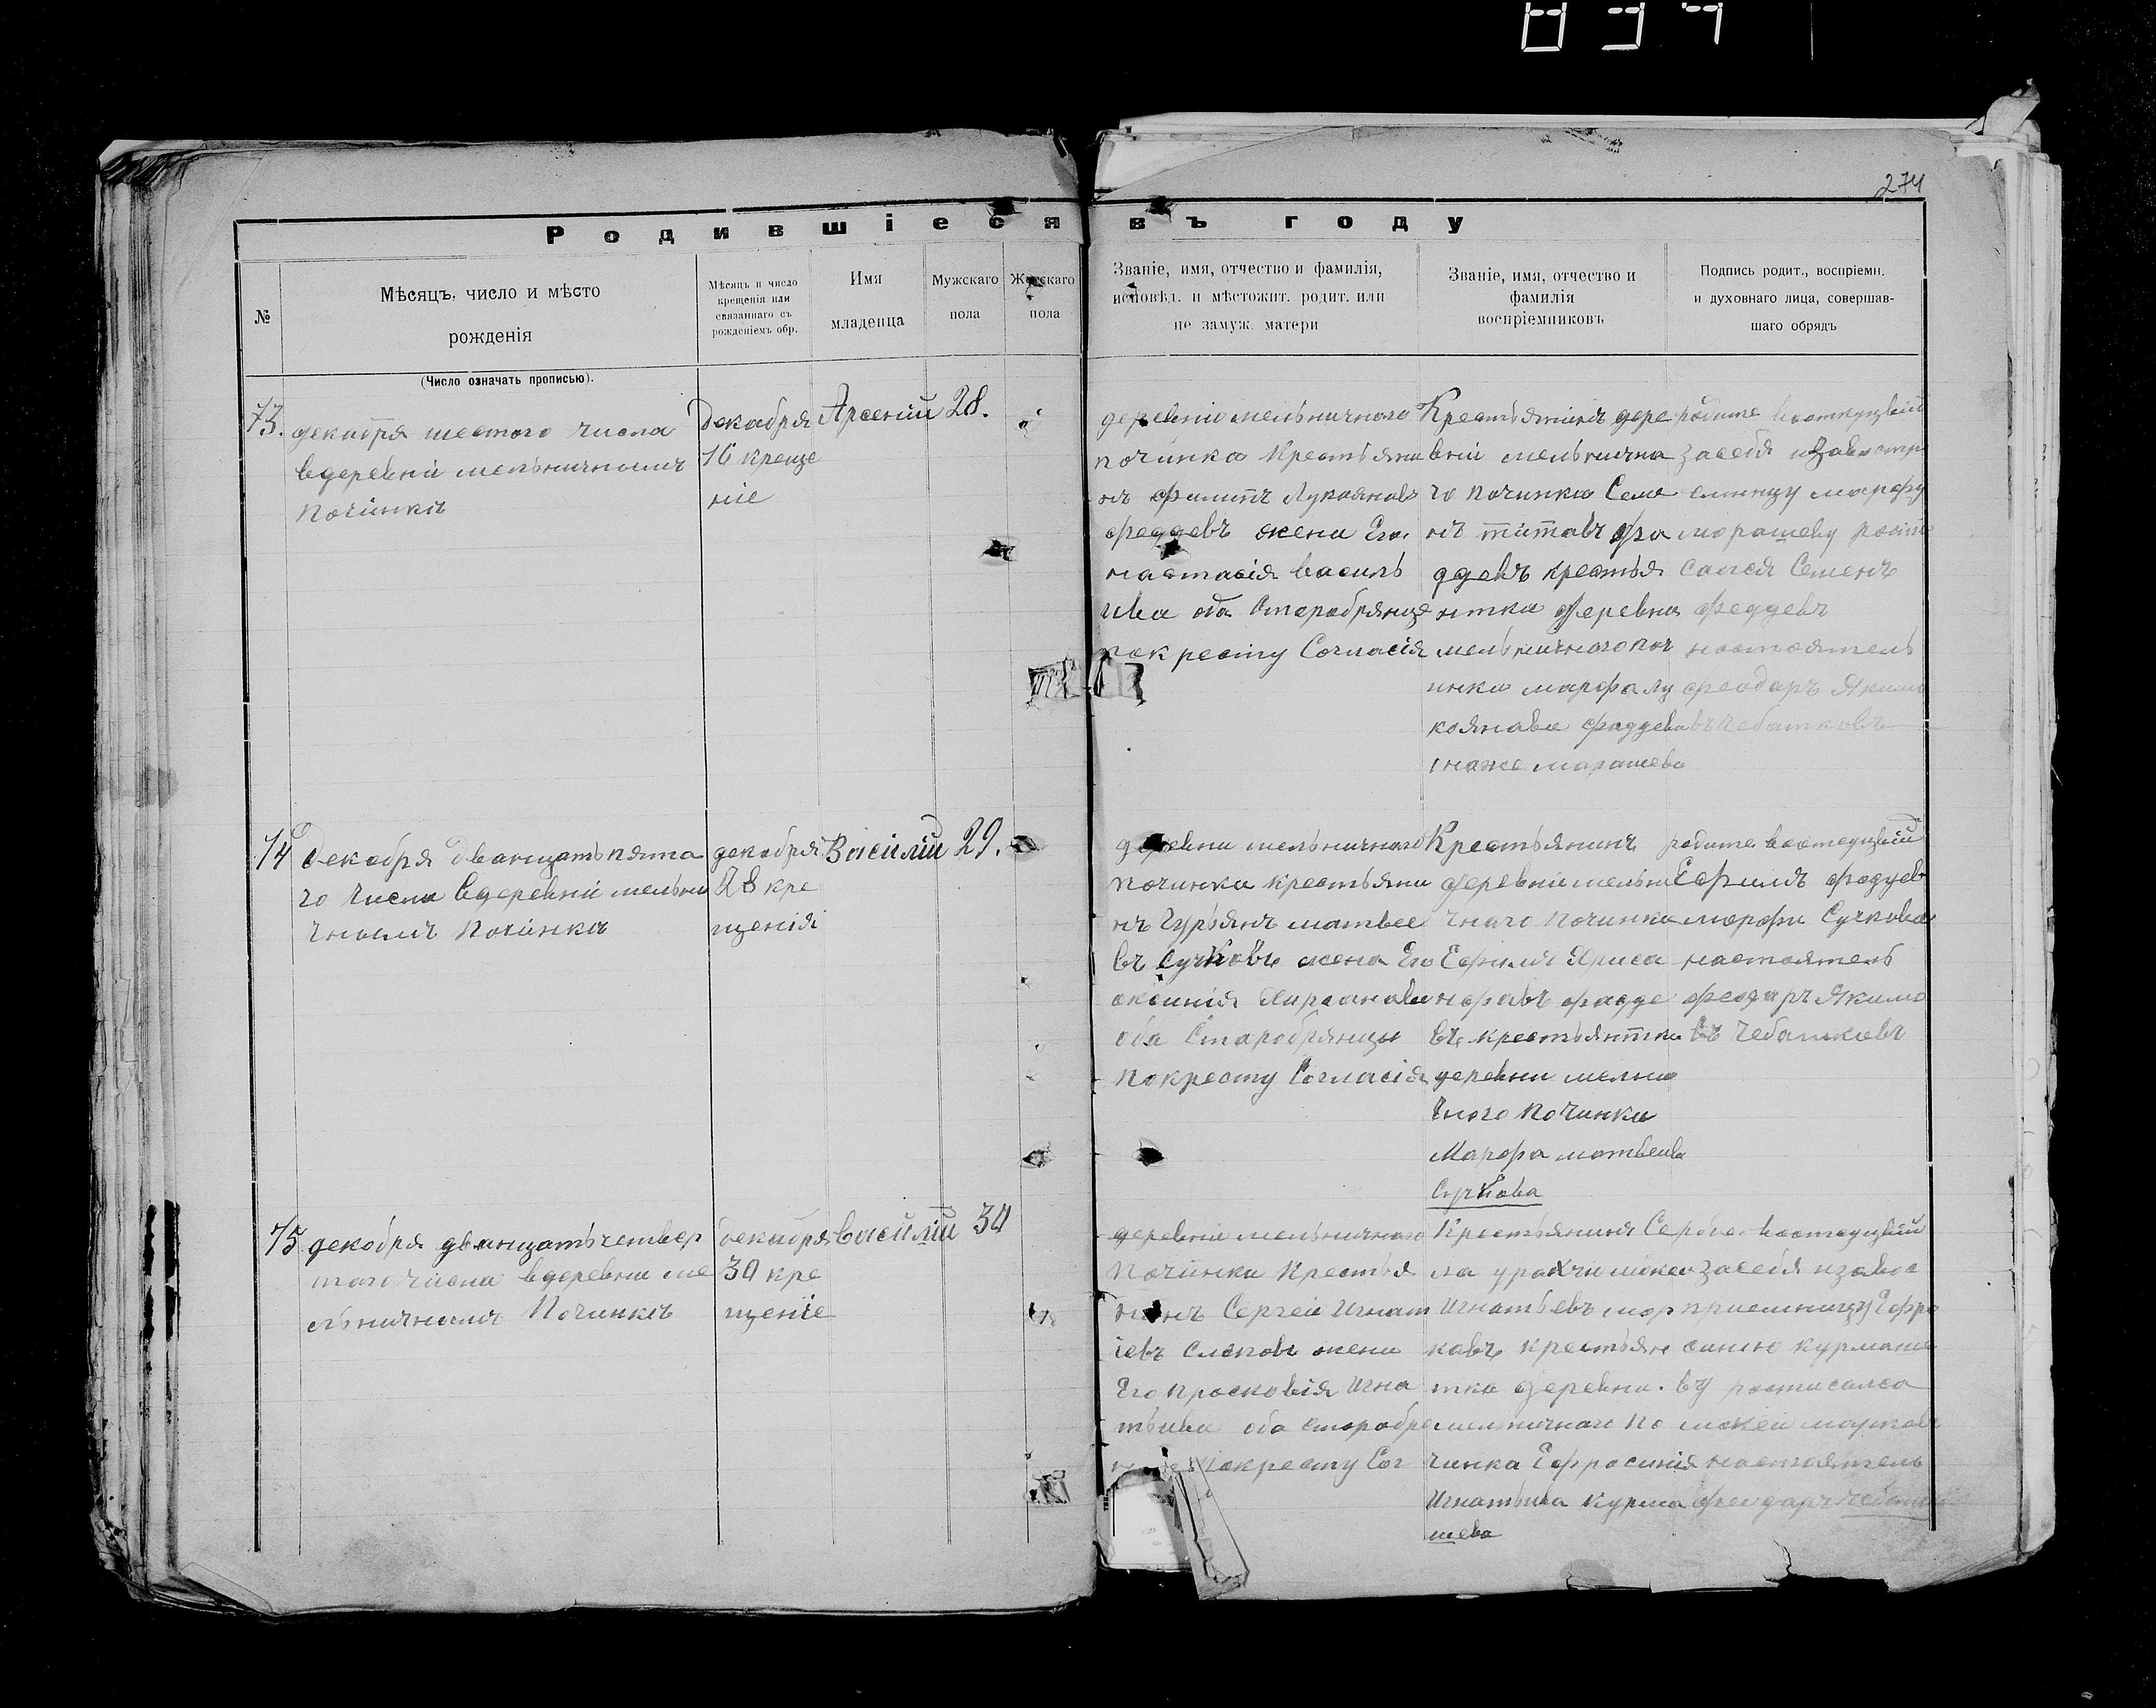 274
Родившіеся въ году
№
Мѣсяцъ, число и мѣсто
рожденія
(Число означать прописью).
Мѣсяцъ и число
крещенія или
связаннаго съ
рожденіемъ обр.
Имя
младенца
Мужскаго
пола
Женскаго
пола
Званіе, имя, отчество и фамилія,
исповѣд. и мѣстожит. родит. или
не замуж. матери
Званіе, имя, отчество и
фамилія
воспріемниковъ
Подпись родит., воспріемн.
и духовнаго лица, совершав-
шаго обрядъ
73.
декабря шестого числа
вдеревні мельничнымъ
Починкъ
Декабря
16 креще
ніе
Арсеній
28.
деревні мельничного
починка Крестьяни
нъ Филипъ Лукояновъ
феддевъ жена Его
настасія василь
ива оба Старобрянце
покресту Согласія
Крестьянинъ дере
вніи мельнична
го починка Семе
нъ титавъ фа
ддевъ крестья
нтка деревни
мельничного поч
инка марфа лу
коянава фаддева
онаже марашева
родите
засебя изавостр
емницу марфу
морашеву роспи
салея Семенъ
феддевъ
настоятель
феодаръ Якимо
въ Чебатковъ
74
декабря дванцатьпята
го числа вдеревні мельни
чнымъ Починкъ
декабря
28 кре
щенія
Василій
29.
деревни мельничного
починки крестьяни
нъ Гурьянъ матвее
въ Сучковъ жена Его
оба Старобрянцы
покресту Согласія
Крестьянинъ
деревніи мельни
чнаго починка
Ефимъ
нфавъ фадде
въ крестьянтка
деревни мельни
чного Починки
Марфа матвеива
Сучкова
родите
Ефимъ фаддев
марфа Сучкова
настоятель
феодаръ Якимо
въ Чебатковъ
75
декабря дванцатьчетвер
таго числа вдеревни ме
льничнымъ Починкъ
декабря
30 кре
щеніе
Василій
30
деревніи мельничного
Починки Крестья
нинъ Сергей Игнат
іевъ Слеповъ жена
Его Просковія Игна
тьива оба старобря
покресту Сог
Крестьянинъ
Игнатьевъ мор
кавъ крестьян
тка деревни
мельничнаго По
чинка Ефросинія
Игнатьива Курма
шева
засебя изавос
приемницу Ефро
синию курмаше
ву росписалса
мокей
настоятель
феодаръ